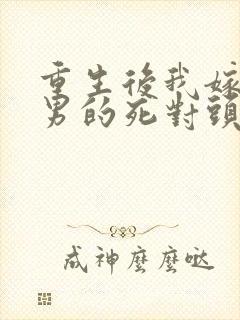 重生後我嫁
男的死對頭
成神麼麼噠